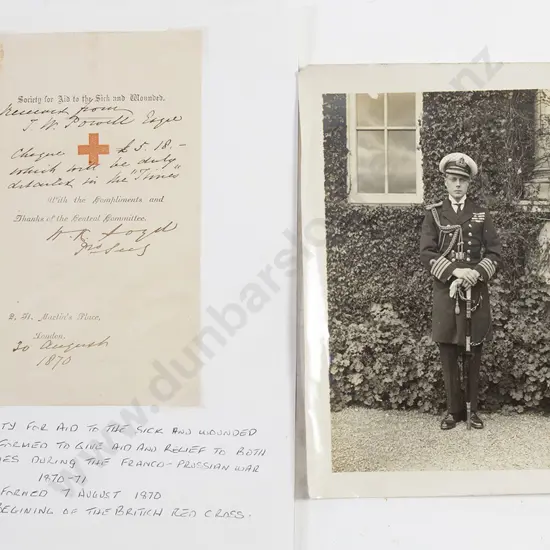 Society for Aid to the Sick and Wounded.
Received from
J. W. Powell Esqre
Cheque £5.18.-
which will be duly
detailed in the "Times"
With the Compliments and
Thanks of the Central Committee.
2. St. Martin's Place,
London.
30 August
1870
TY FOR AID TO THE SICK AND WOUNDED
FORMED TO GIVE AID AND RELIEF TO BOTH
ES DURING THE FRANCO-PRUSSIAN WAR
1870-71
FORMED 7 AUGUST 1870
BEGINING OF THE BRITISH RED CROSS.